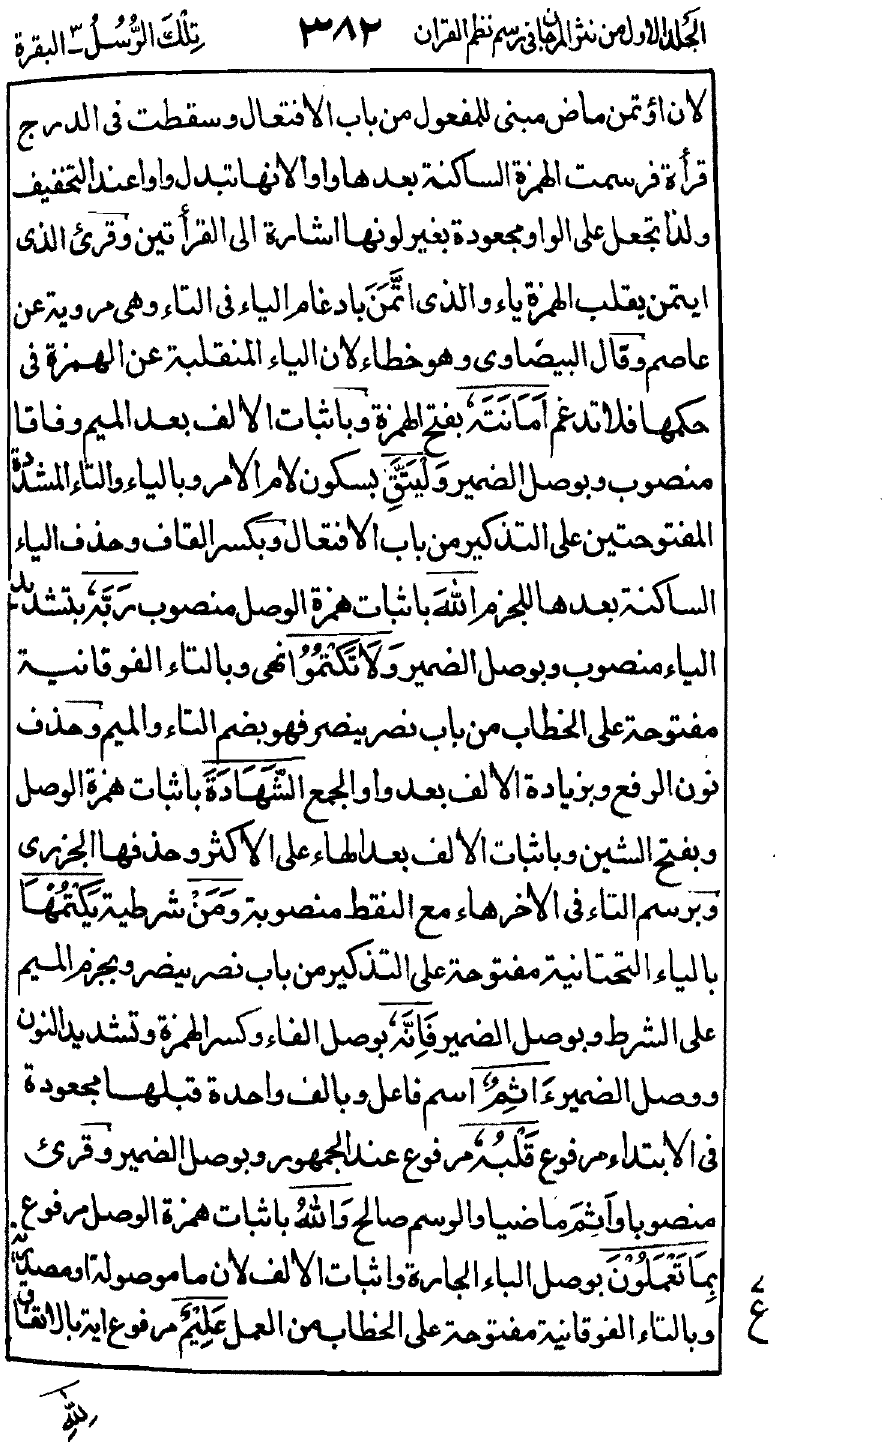 المجلد الاول من نثر المرجان فى رسم نظم القران ٣٨٢ تِلْكَ الرُّسُلُ ٣ـ البقرة
لان اؤتمن ماض مبنى للمفعول من باب الافتعال وسقطت فى الدرج
قرأة فرسمت الهمزة الساكنة بعدها واوا لانها تبدل واوا عند التخفيف
ولذا تجعل على الواو مجعودة بغير لونها اشارة الى القرأتين وقرئ الذى
ايتمن بقلب الهمزة ياء والذى اتَّمَنَ بادغام الياء فى التاء وهى مروية عن
عاصم وقال البيضاوى وهو خطاء لان الياء المنقلبة عن الهمزة فى
حكمها فلا تدغم اَمَانَتَهٗ بفتح الهمزة وباثبات الالف بعد الميم وفاقا
منصوب وبوصل الضمير وَلْيَتَّقِ بسكون لام الامر وبالياء والتاء المشددة
المفتوحتين على التذكير من باب الافتعال وبكسر القاف وحذف الياء
الساكنة بعدها للجزم اللّٰهَ باثبات همزة الوصل منصوب رَبَّهٗ بتشديد
الباء منصوب وبوصل الضمير وَلَا تَكْتُمُوْا نهى وبالتاء الفوقانية
مفتوحة على الخطاب من باب نصر ينصر فهو بضم التاء والميم وحذف
نون الرفع وبزيادة الالف بعد واو الجمع الشَّهَادَةَ باثبات همزة الوصل
وبفتح الشين وباثبات الالف بعد الهاء على الاكثر وحذفها الجزرى
وبرسم التاء فى الاخر هاء مع النقط منصوبة وَمَنْ شرطية يَكْتُمْهَا
بالياء التحتانية مفتوحة على التذكير من باب نصر ينصر وبجزم الميم
على الشرط وبوصل الضمير فَاِنَّهٗ بوصل الفاء وكسر الهمزة وتشديد النون
ووصل الضمير ءَاثِمٌ اسم فاعل وبالف واحدة قبلها مجعودة
فى الابتداء مرفوع قَلْبُهٗ مرفوع عند الجمهور وبوصل الضمير وقرئ
منصوبا واَثِمَ ماضيا والرسم صالح وَاللّٰهُ باثبات همزة الوصل مرفوع
بِمَا تَعْمَلُوْنَ بوصل الباء الجارة واثبات الالف لان ما موصولة او مصدرية
وبالتاء الفوقانية مفتوحة على الخطاب من العمل عَلِيْمٌ مرفوع اية بالاتفاق
ع
لِلّٰهِ